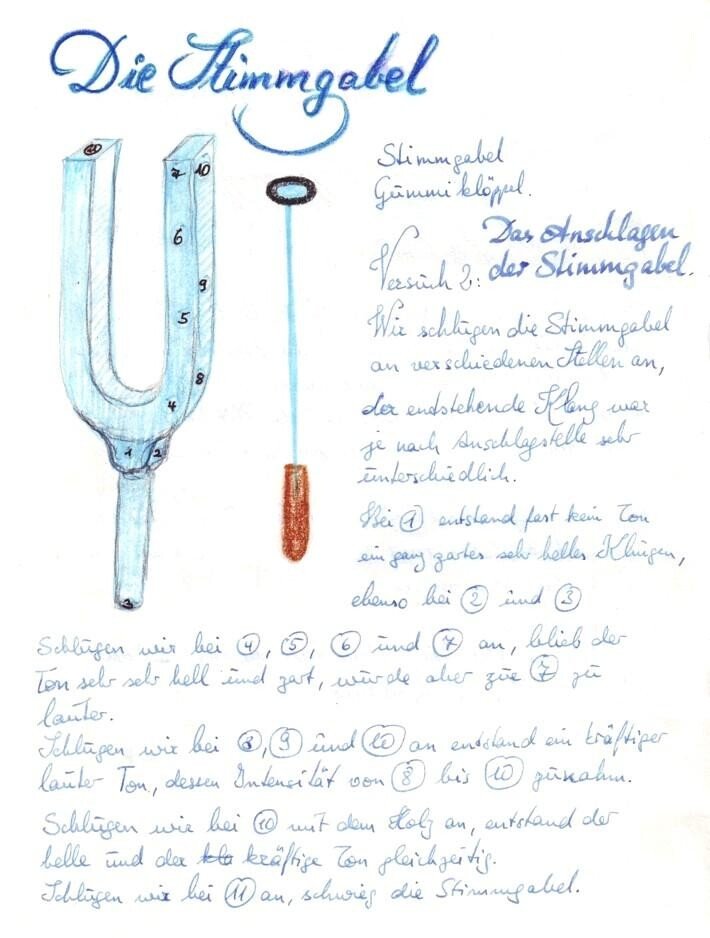 Die Stimmgabel
11
7 10
6
9
5
8
4
1 2
3
Stimmgabel
Gummiklöppel.
Versuch 2: Das Anschlagen
der Stimmgabel.
Wir schlugen die Stimmgabel
an verschiedenen Stellen an,
der entstehende Klang war
je nach Anschlagstelle sehr
unterschiedlich.
Bei 1 entstand fast kein Ton
ein ganz zartes sehr helles Klingen,
ebenso bei 2 und 3
Schlugen wir bei 4, 5, 6 und 7 an, blieb der
Ton sehr sehr hell und zart, wurde aber zur 7 zu
lauter.
Schlugen wir bei 8, 9 und 10 an entstand ein kräftiger
lauter Ton, dessen Intensität von 8 bis 10 zunahm.
Schlugen wir bei 10 mit dem Holz an, entstand der
helle und der kräftige Ton gleichzeitig.
Schlugen wir bei 11 an, schwieg die Stimmgabel.